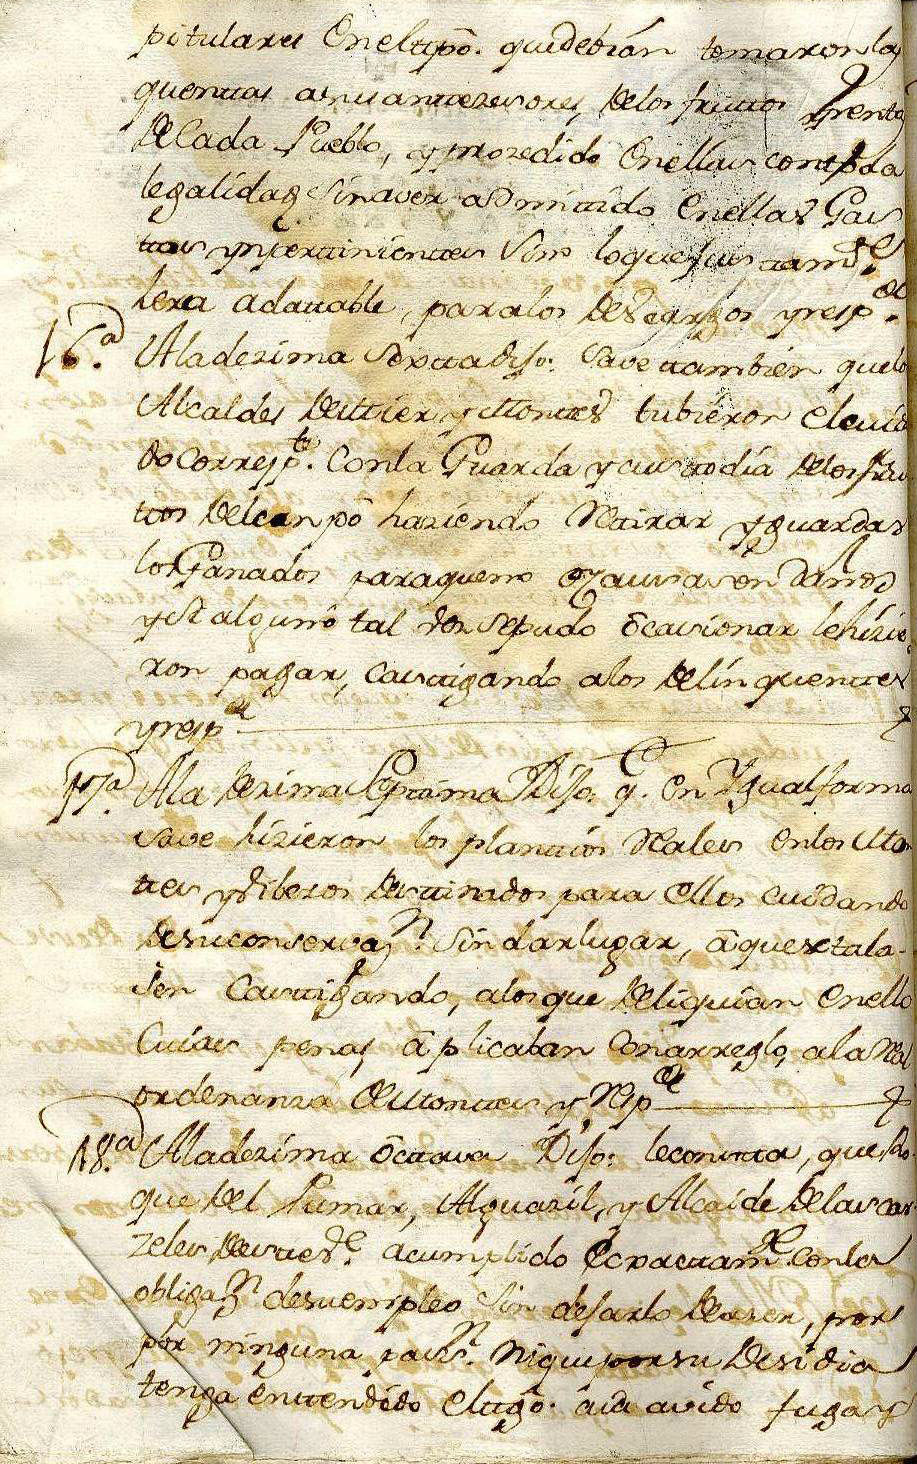 pitulares En el tipô. que debian tomaron las
quentas asus antezesores, de los fruttos y renta
de Cada Pueblo, y prozedido En ellas con toda
legalidad sin aver admittido En ellas Gas
ttos ympertinientes Sino lo que fuese tamte.
hera adattable, para los descargos y respde.
16.a A la dezima Sextta Dijo: Save tambien que los
Alcaldes de Ittier y Monttes tubieron el cuida
do correspte. Con la Guarda y custtodia de los fru
ttos del canpô haziendo Retirar y guardar
los Ganados para que no Causasen daños
y si alguno tal vez se pudo ôcasionar le hizie
ron pagar, Casttigando a los delinquenttes
y respde
17a A la dezima Septima Dijo: q. en Ygual forma
Save hizieron los planttios Reales en los Mon
ttes y Viberos desttinados para ellos cuidando
de su conservazn. Sin dar lugar, â que se tala-
sen Casttigando, a los que deliquian En ello
Cuias penas âplicaban Con arreglo, a la Real
ordenanza de Monttes y Respde
18.a A la dezima ôcttava Dijo: le constta, que Ro
que del Pumar, Alguazil, y Alcaide de las car
zeles de estte âcumplido Exacttamte. con las
obligazn de su empleo Sin dejarlo de azer, por
por ninguna pasn. Ni que por su desidia
tenga enttendido el ttgô. aia avido fugas